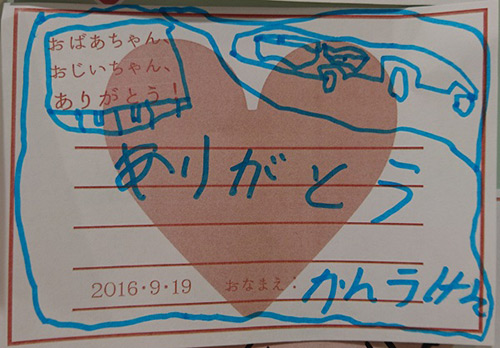 おばあちゃん、
おじいちゃん、
ありがとう!
ありがとう
2016・9・19 おなまえ:かんうけを